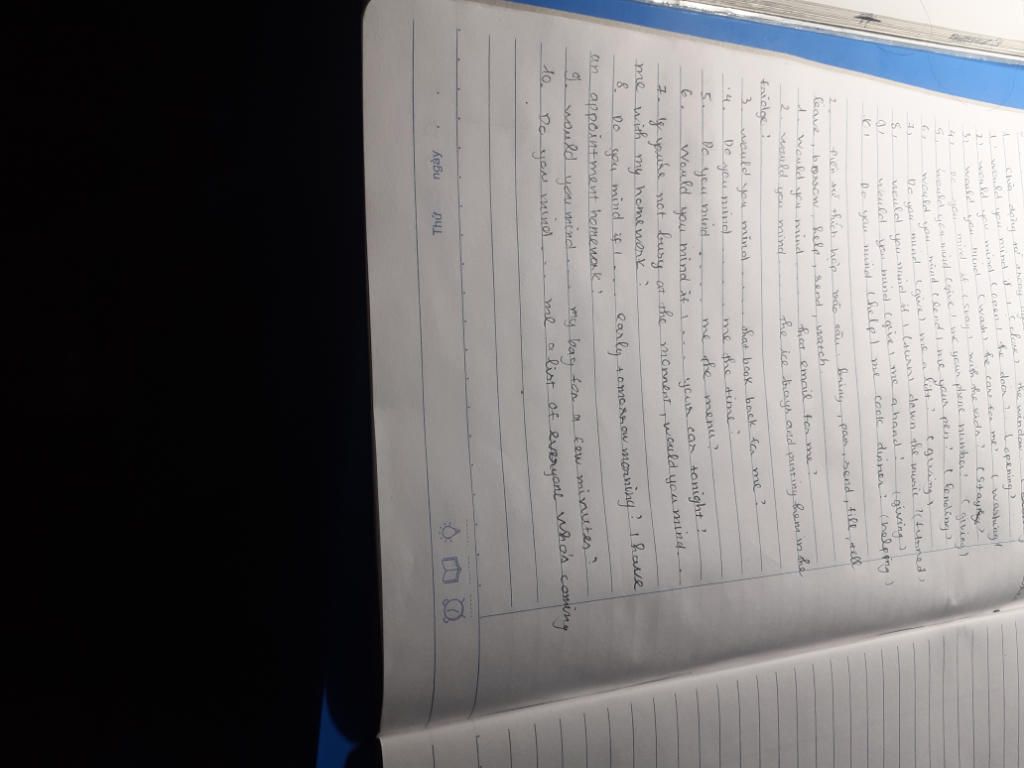 chia động từ trong ( close ) the window
1. would you mind ( open ) the door? ( opening )
2. would you mind ( wash ) the car for me? ( washing )
3. would you mind if I ( stay ) with the kids? ( stayed )
4. Do you mind ( give ) me your phone number? ( giving )
5. would you mind ( lend ) me your pen? ( lending )
6. would you mind ( give ) me a lift? ( giving )
7. Do you mind if I ( turn ) down the music? ( turned )
8. would you mind ( give ) me a hand? ( giving )
9. Do you mind ( help ) me cook dinner? ( helping )
2. Điền từ thích hợp vào câu bring, pass, send, fill, tell
leave, borrow, help, send, watch
1. would you mind .... that email for me?
2. would you mind .... the ice trays and putting them in the
fridge?
3. would you mind .... that book back for me?
4. Do you mind .... me the time?
5. Do you mind .... me the menu?
6. would you mind if I .... your car tonight?
7. If you're not busy at the moment, would you mind ...
me with my homework?
8. Do you mind if I .... early tomorrow morning? I have
an appointment homework?
9. would you mind .... my bag for a few minutes?
10. Do you mind .... me a list of everyone who's coming
Thứ ngày